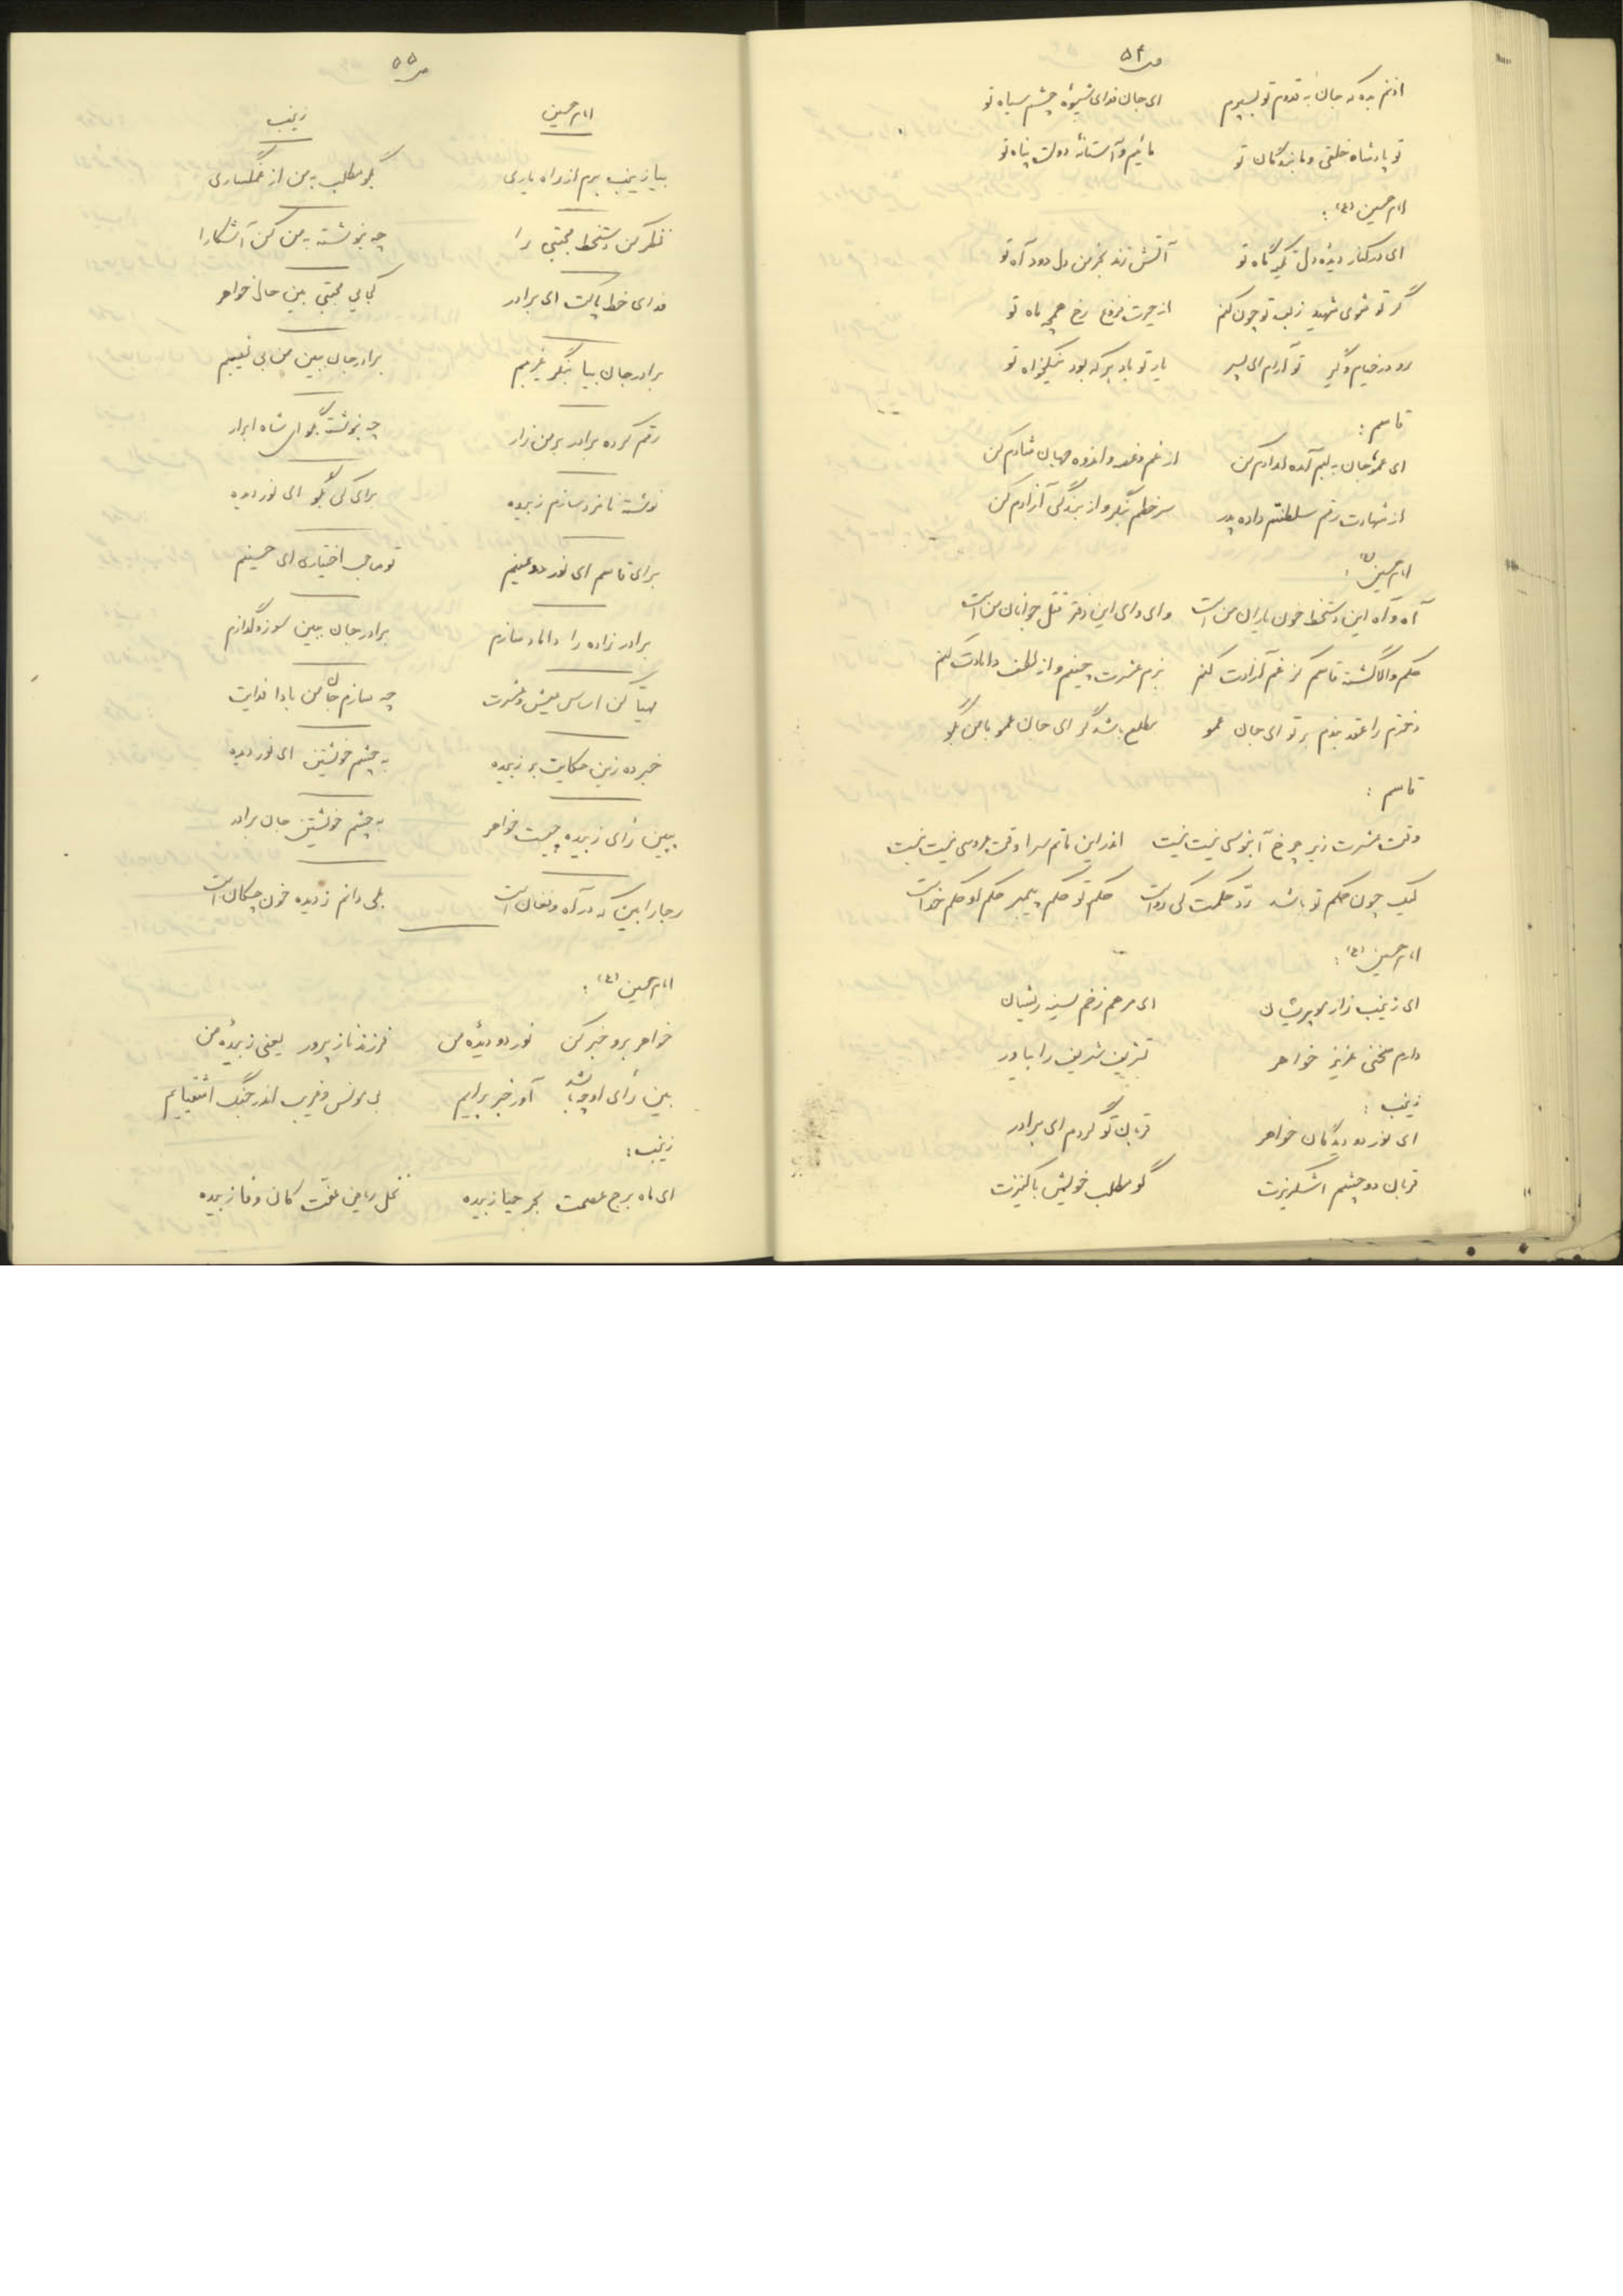 ص ۵۴
اذنم بده که جان به قدوم تو بسپرم ای جان فدای شیوه چشم سیاه تو
تو پادشاه خلقی و ما بندگان تو مائیم و آستانهٔ دولت پناه تو
امام حسین (ع) :
ای در کنار دیده دل تکیه گاه تو آتش زند بخرمن دل دود آه تو
گر تو شوی شهید ز بعد تو چون کنم از حسرت فروغ رخ همچو ماه تو
رو در خیام و گیر تو آرام ای پسر یار تو باد هر که بود نیکخواه تو
قاسم :
ای عمو جان به لبم آمده امدادم کن از غم و غصه و اندوه جهان شادم کن
از شهادت رقم سلطنتم داده پدر سر خطم بنگر و از بندگی آزادم کن
امام حسین (ع) :
آه و آه این دستخط خون یاران من است وای وای این دفتر قتل جوانان من است
حکم والا گشته قاسم کز غم آزادت کنم بزم عشرت چینم و از لطف دامادت کنم
دخترم را عقد بندم بر تو ای جان عمو مطلع باشد گر ای جان عمو با من بگو
قاسم :
وقت عشرت زیر چرخ آبنوسی نیست نیست اندر این ماتم سرا وقت عروسی نیست نیست
لیک چون حکم تو باشد رد حکمت کی رواست حکم تو حکم پیمبر حکم او حکم خداست
امام حسین (ع) :
ای زینب زار مو پریشان ای مرهم زخم سینه ریشان
دارم سخنی عزیز خواهر تشریف شریف را بیاور
زینب :
ای نور دو دیدگان خواهر قربان تو گردم ای برادر
قربان دو چشم اشکریزت گو مطلب خویش با کنیزت
ص ۵۵
امام حسین زینب
بیا زینب برم از راه یاری بگو مطلب به من از غمگساری
نظر کن دستخط مجتبی را چه بنوشته به من کن آشکارا
فدای خط پاکت ای برادر کجایی مجتبی بین حال خواهر
برادر جان بیا بنگر غریبم برادر جان ببین من بی نصیبم
رقم کرده برادر بر من زار چه بنوشته بگو ای شاه ابرار
نوشته نامزد سازم زبیده برای کی بگو ای نور دیده
برای قاسم ای نور دو عینم تو صاحب اختیاری ای حسینم
برادر زاده را داماد سازم برادر جان ببین سوز و گدازم
مهیا کن اساس عیش و عشرت چه سازم جان من بادا فدایت
خبر ده زین حکایت بر زبیده به چشم خویشتن ای نور دیده
ببین رأی زبیده چیست خواهر به چشم خویشتن جان برادر
رجا را بین که در آه و فغان است بلی دانم ز دیده خون چکان است
امام حسین (ع) :
خواهر برو خبر کن نور دو دیدهٔ من فرزند ناز پرور یعنی زبیدهٔ من
بین رأی او چه باشد آور خبر برایم بی مونس و غریب اندر جنگ اشقیایم
زینب :
ای ماه برج عصمت بحر حیا زبیده نخل ریاض عفت کان وفا زبیده